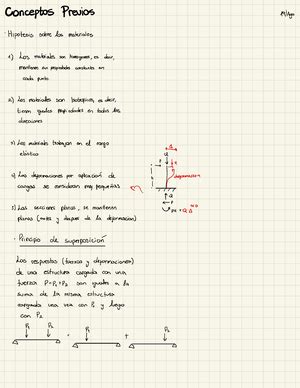 Conceptos Previos
Hipótesis sobre los materiales
1) Los materiales son homogéneos, es decir,
mantienen sus propiedades constantes en
cada punto
2) Los materiales son isotrópicos, es decir,
tienen iguales propiedades en todas las
direcciones
3) Los materiales trabajan en el rango
elástico
4) Las deformaciones por aplicación de
cargas se consideran muy pequeñas
deformación
5) Las secciones planas, se mantienen
planas (antes y después de la deformación)
Principio de superposición
Las respuestas (fuerzas y deformaciones)
de una estructura cargada con una
fuerza P=P1+P2 son iguales a la
suma de la misma estructura
cargada una vez con P1 y luego
con P2
P1 P2 = P1 + P2